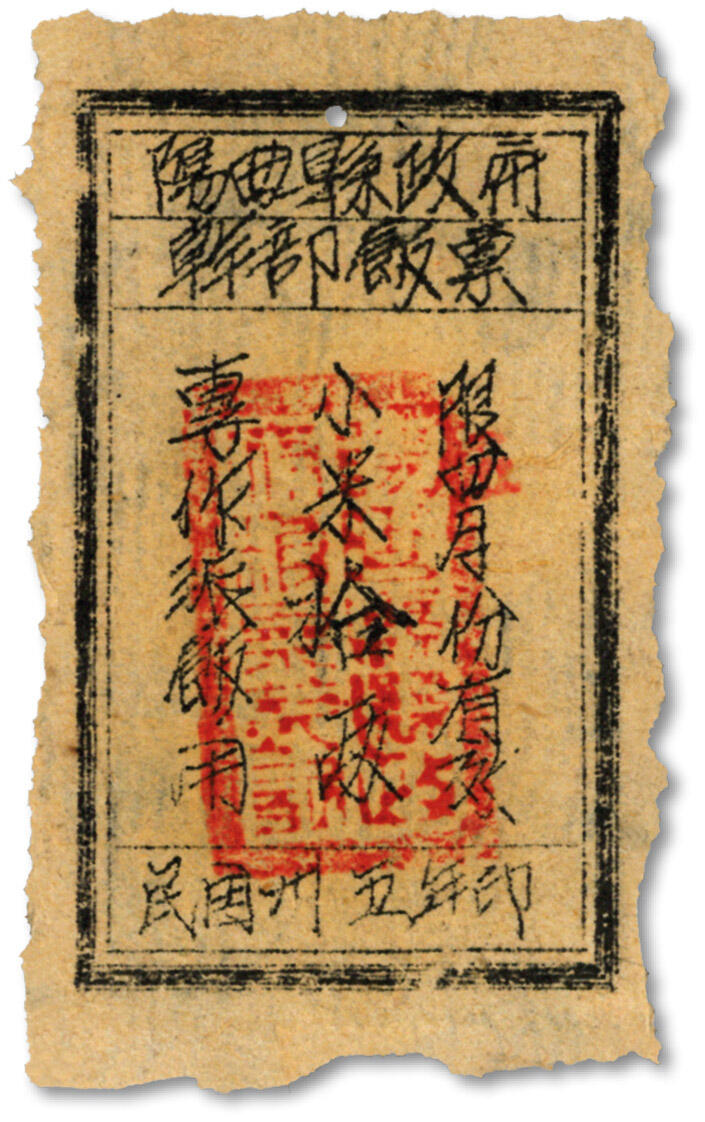 陽曲縣政府
幹部飯票
限月份有效
小米拾
專作派飯用
民国卅五年印